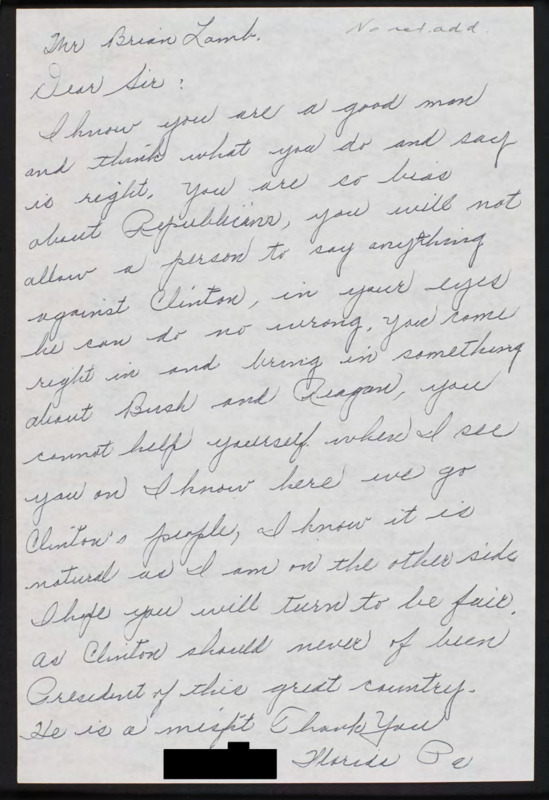 No ret. add.
Mr Brian Lamb.
Dear Sir :
I know you are a good man
and think what you do and say
is right. You are so bias
about Republicians, you will not
allow a person to say anything
against Clinton, in your eyes
he can do no wrong. You come
right in and bring in something
about Bush and Reagan, you
cannot help yourself. when I see
you on I know here we go
Clinton's people, I know it is
natural as I am on the other side
I hope you will turn to be fair.
as Clinton should never of been
President of this great country.
He is a misfit Thank You
Florise Pa